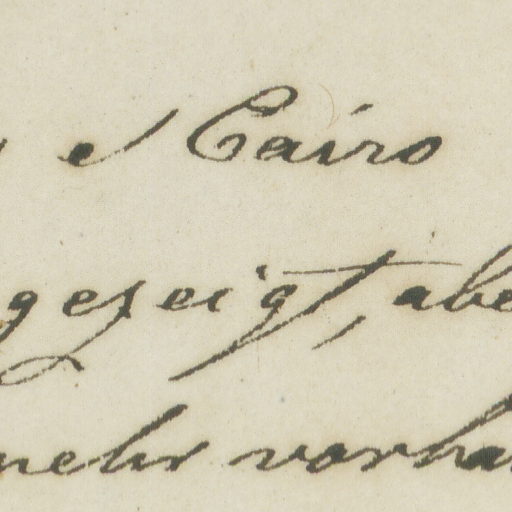 Cairo
gezeigt, abe
mehr vorha